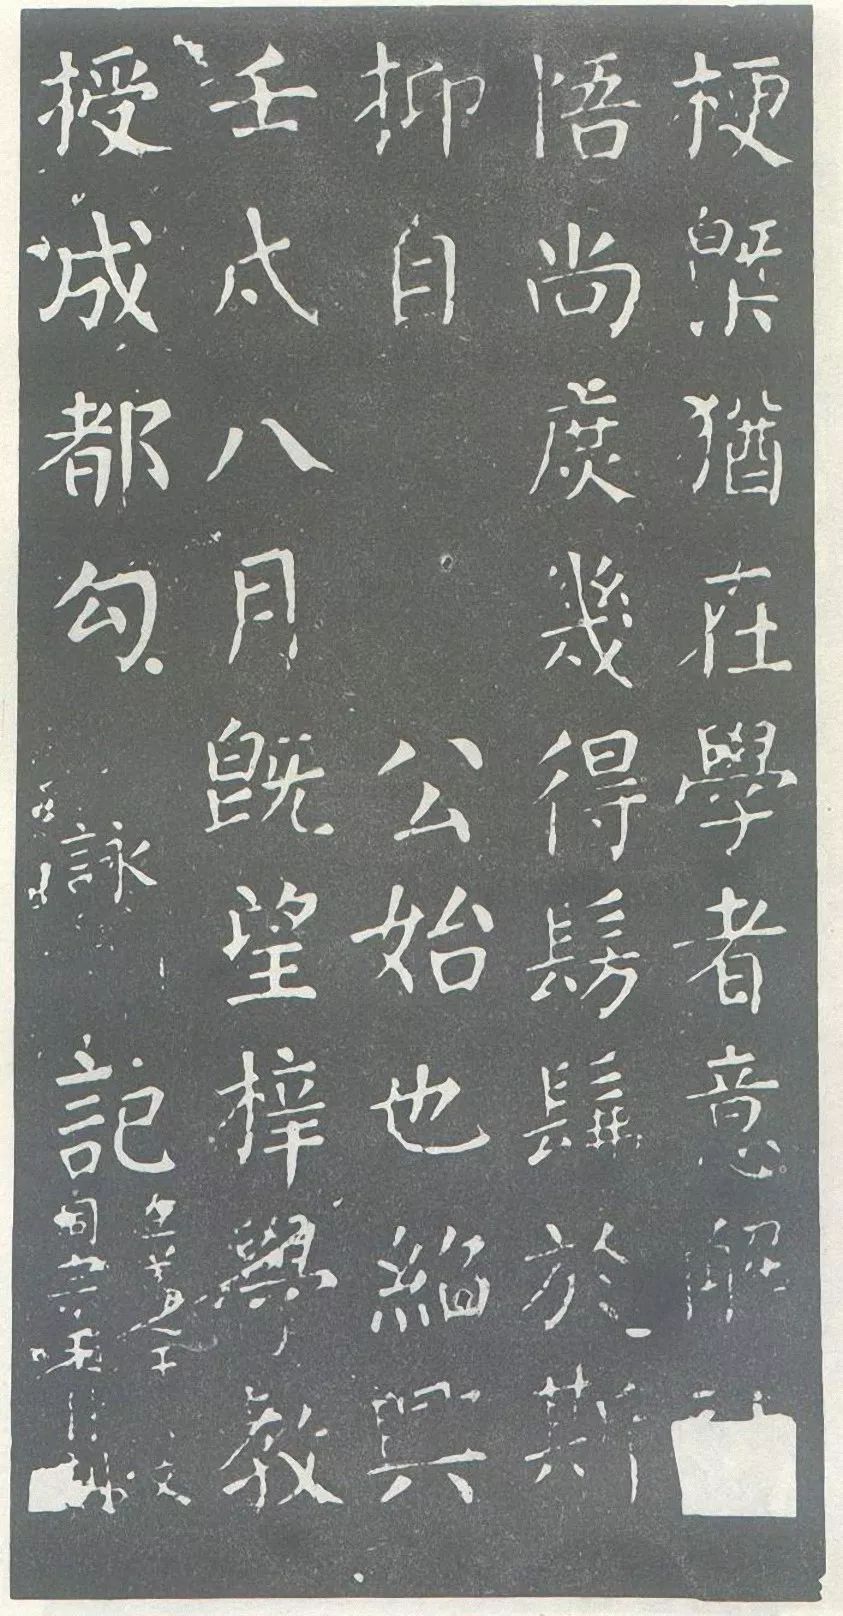 梗槩猶在學者意解
悟尚庶幾得髣髴於斯
抑自公始也紹興
壬戌八月旣望梓學教
授成都勾詠記